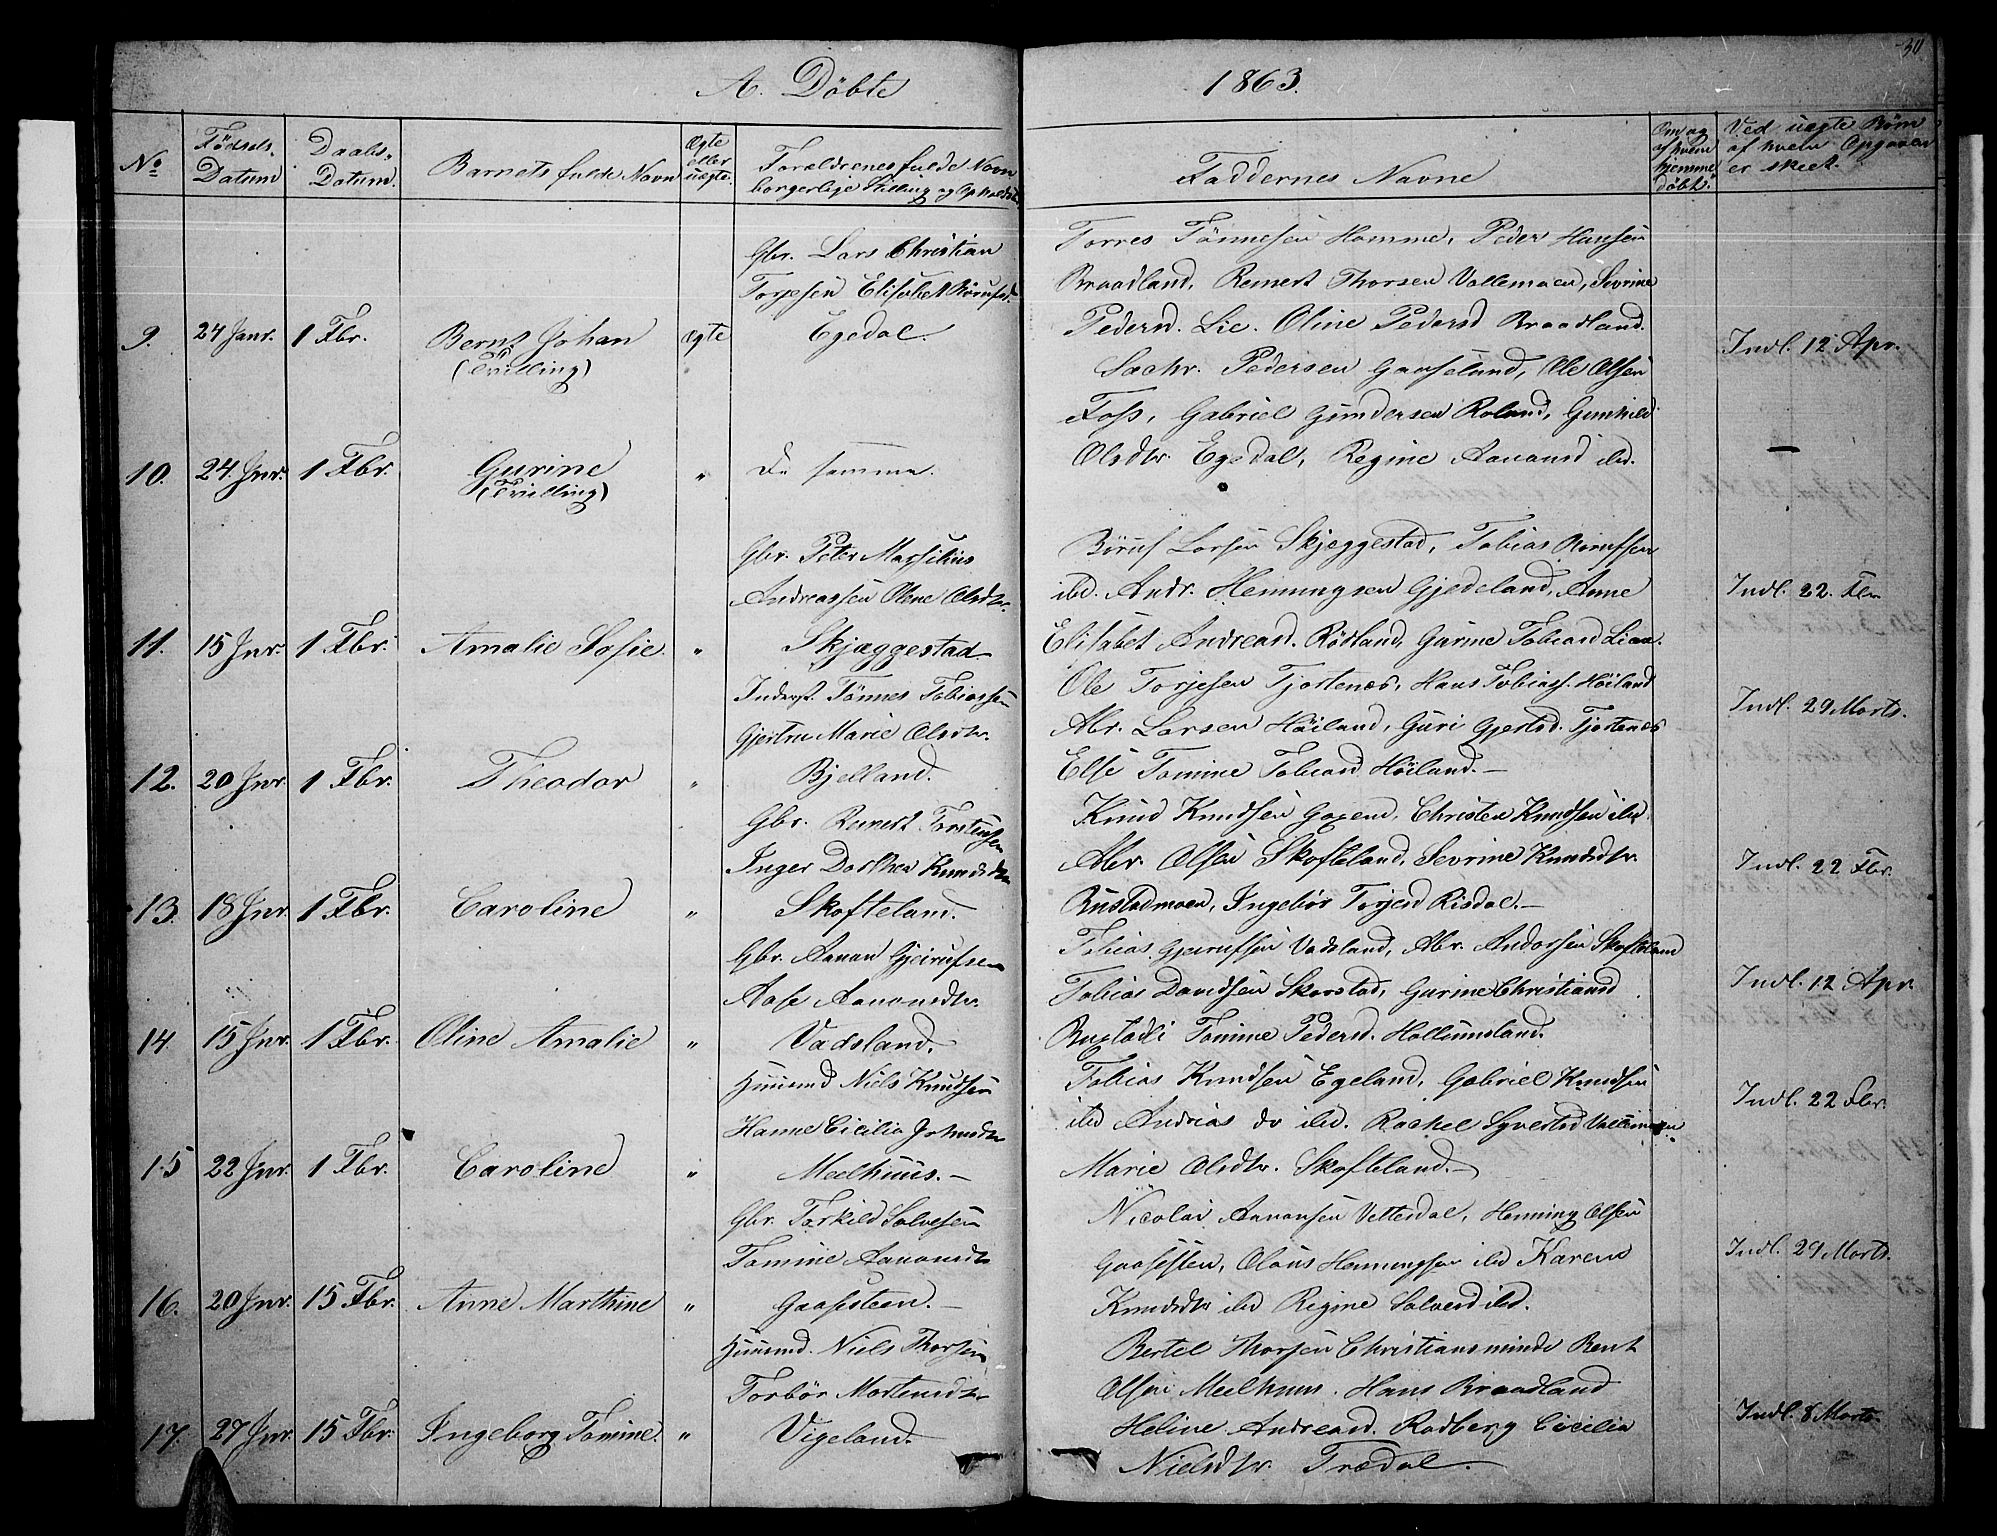 A. Döbte
1863.
30
No
Födsels-Datum
Daabs-Datum.
Barnets fulde Navn
Ægte eller uægte.
Forældrenes fulde Navn borgerlige Stilling og Opholdsted
Faddernes Navne
Om og af hvem hjemme döbt.
Ved uægte Börn af hvem Opgaven er skeet.
9. 24 Janr. 1 Fbr. Bernt Johan (Tvilling) Ægte
Gbr. Lars Christian
Torjesen Elisabet Börufsd.
Egedal.
Torres Tönnesen Homme, Peder Hansen
Braadland, Reinert Thorsen Vallemoen, Sevrine
Pedersd. Lie. Oline Pedersd Braadland.
Indl. 12 Apr.
10. 24 Jnr. 1 Fbr. Gurine (Tvilling) "
De samme.
Sachr. Pedersen Gaaseland, Ole Olsen
Foss, Gabriel Gundersen Roland, Gunhild
Olsdtr. Egedal, Regine Aanonsd ibd.
—
11. 15 Jnr. 1 Fbr. Amalie Sofie. "
Gbr. Peter Marselius
Andreassen Olene Olsdtr.
Skjæggestad
Böruf Larsen Skjeggestad, Tobias Börufsen
ibd. Andr. Henningsen Gjedeland, Anne
Elisabet Andreasd. Rödland, Gurine Tobiasd Lian.
Indl. 22. Fbr
12. 20 Jnr. 1 Fbr. Theodor "
Inderst. Tönnes Tobiassen
Gjertru Marie Olsdtr.
Bjelland.
Ole Torjesen Tjortenæs, Hans Tobiass. Höiland
Abr. Larsen Höiland, Guri Gjertsd. Tjortenæs
Else Tomine Tobiasd Höiland.—
Indl. 29 Marts.
13. 18 Jnr. 1 Fbr. Caroline "
Gbr. Reinert Torstensen
Inger Dorthea Knudsdtr
Skofteland.
Knud Knudsen Christen Knudsen ibd
Abr. Olsen Skofteland, Sevrine Knudsdtr.
Bustadmoen, Ingebör Torjesd Risdal.—
Indl. 22 Fbr.
14. 15 Jnr. 1 Fbr. Oline Amalie "
Gbr. Aanon Gjerufsen
Aase Aanonsdtr.
Vadsland.
Tobias Gjerufsen Vadsland, Abr. Andorsen Skofteland
Tobias Davidsen Skorstad, Gurine Christiansd
Tomine Pedersd. Hollumsland.
Indl. 12 Apr.
15 22 Jnr. 1 Fbr. Caroline "
Huusmd Niels Knudsen
Hanne Cicilia Johnsdtr
Meelhuus.—
Tobias Knudsen Egeland, Gabriel Knudsen
ibd Andreas do ibd. Rachel Syvertsd Vallemoen
Marie Olsdtr. Skofteland.—
Indl. 22 Fbr.
16. 20 Jnr. 15 Fbr. Anne Marthine "
Gbr. Torkild Salvesen
Tomine Aanonsdtr
Gaasesteen.—
Nicolai Aanonsen Vettesdal, Henning Olsen
Gaasesten, Olaus Henningsen ibd Karen
Knudsdtr ibd Regine Salvesd ibd.
Indl. 29 Marts.
17. 27 Jnr. 15 Fbr. Ingeborg Tomine. "
Huusmd. Niels Thorsen
Torbör Mortensdtr
Vigeland.
Bertel Thorsen Christiansminde Bent
Olsen Meelhuus. Hans Braadland
Heline Andreasd. Rodberg Cicilia
Nielsdtr. Trædal.
Indl. 8 Marts.